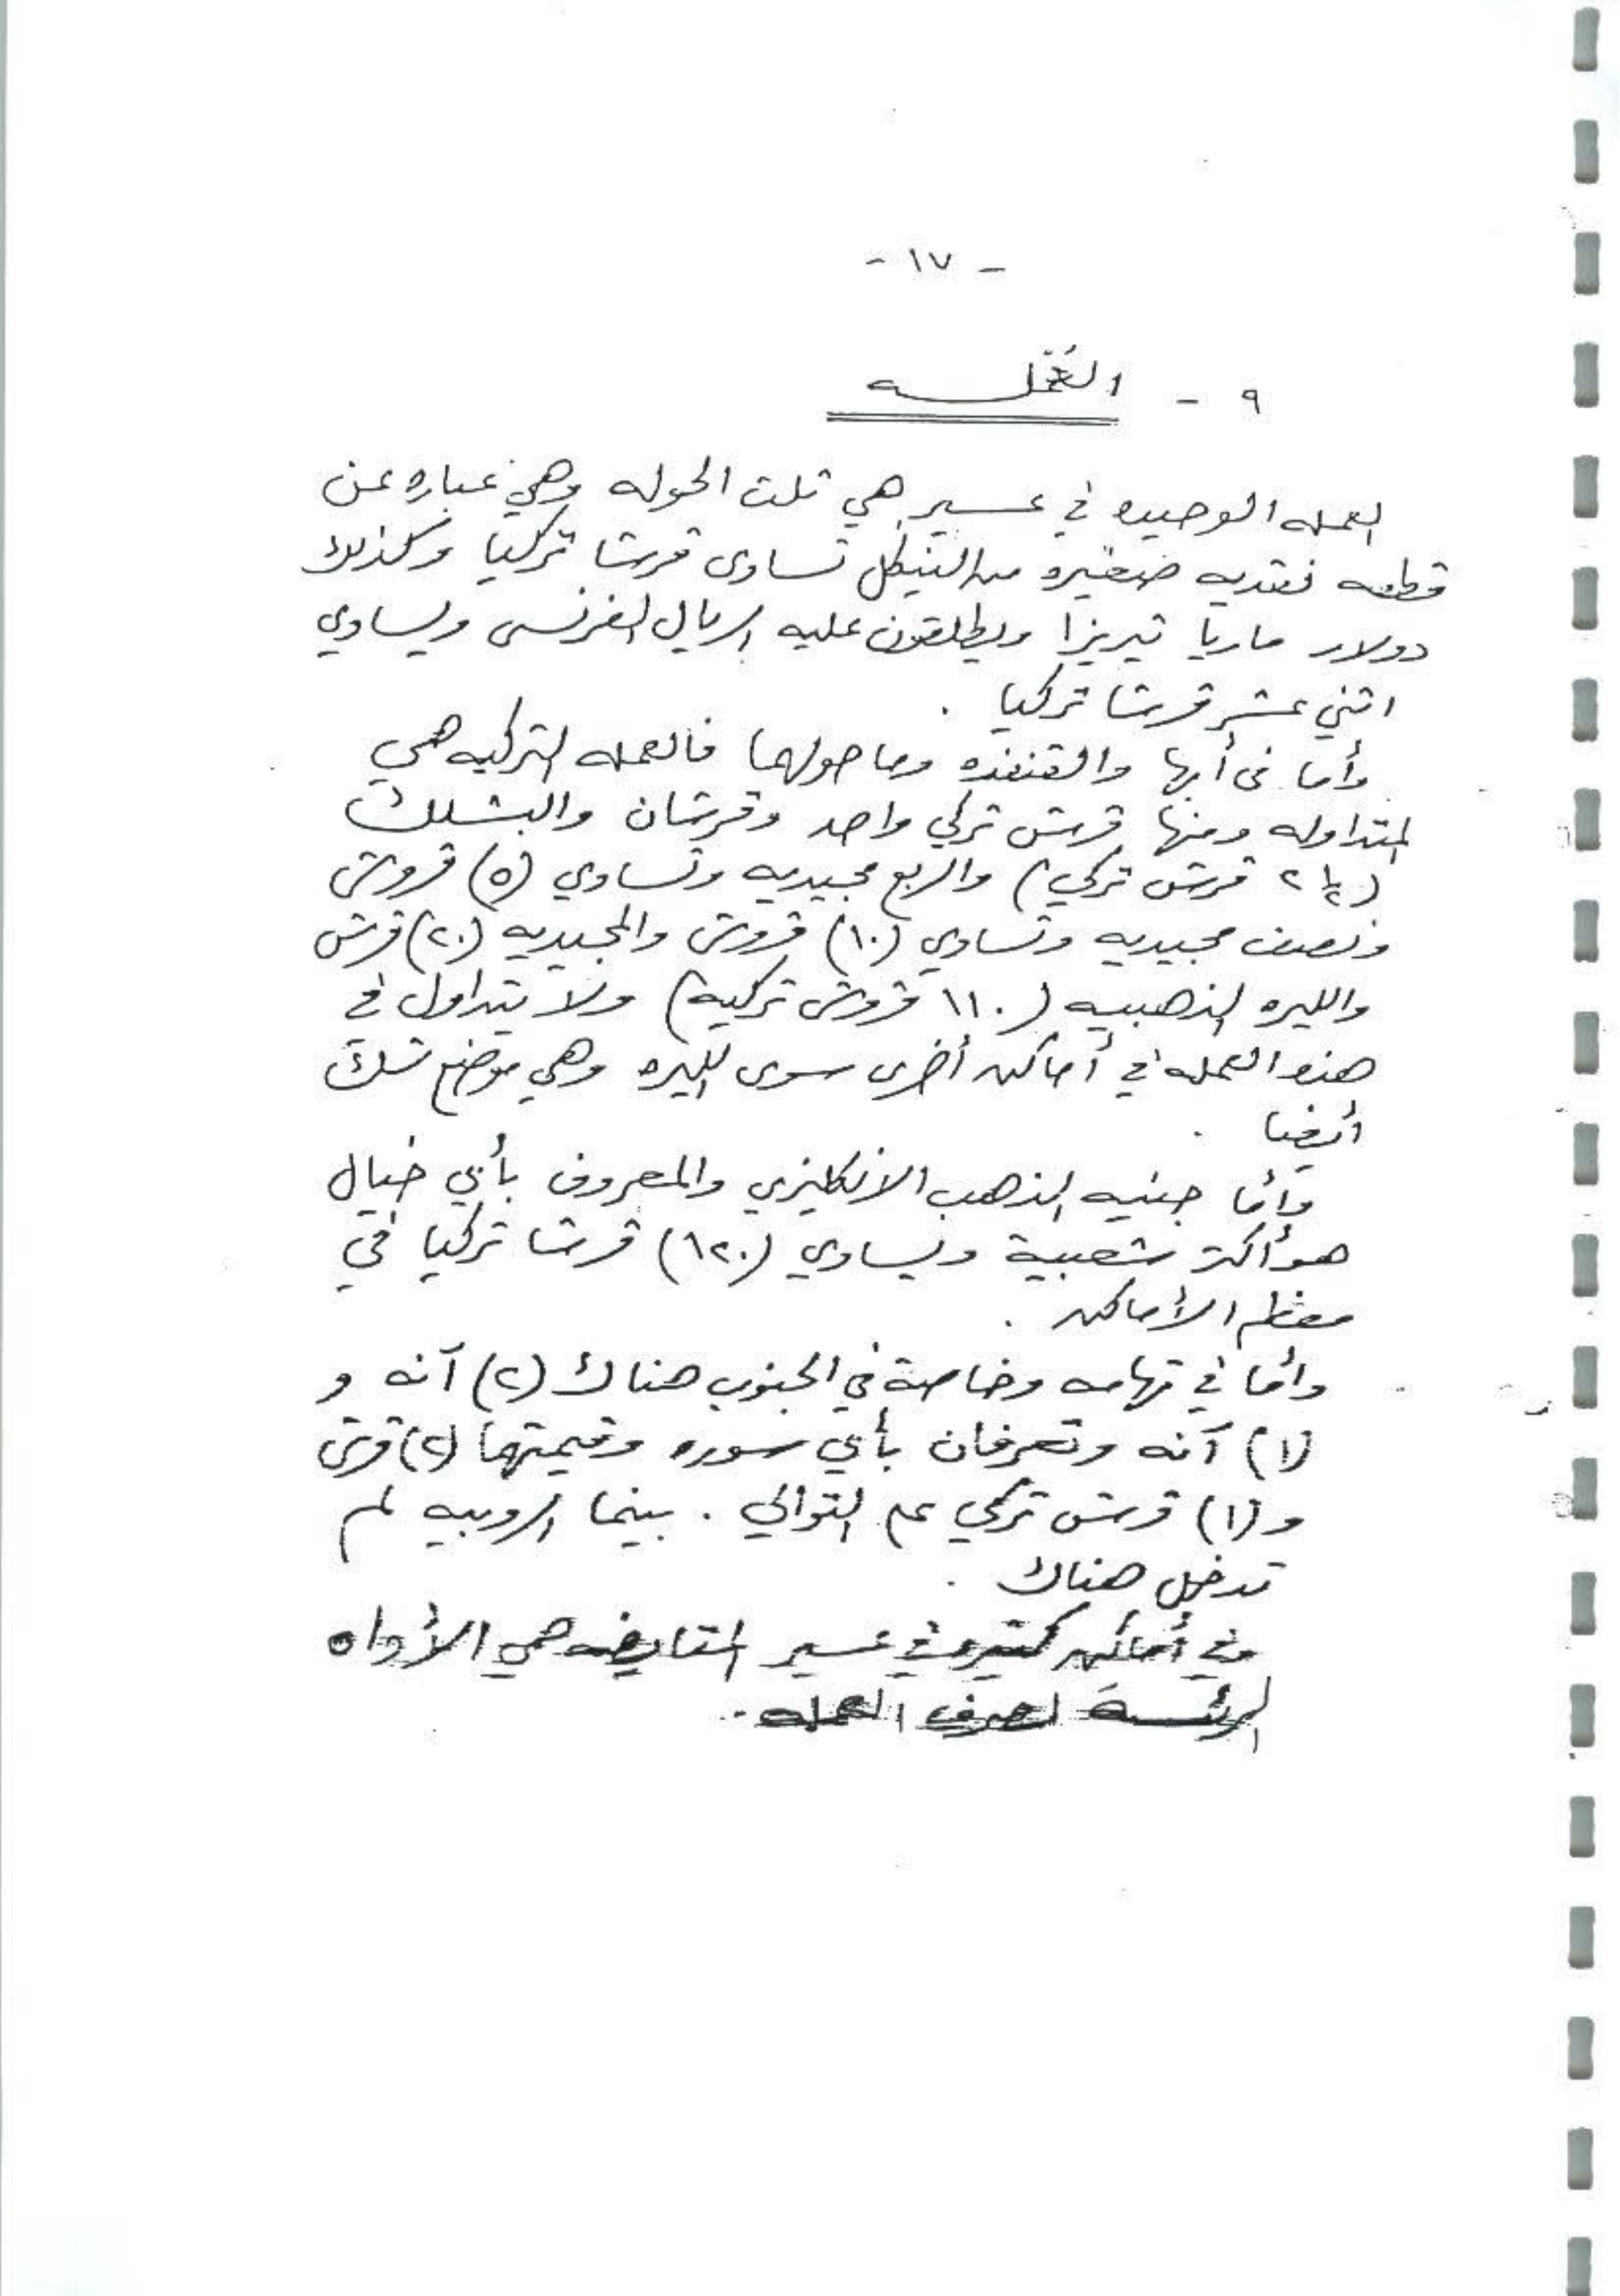 - ١٧ -
٩ - العُمله
العمله الوحيده في عسير هي ثلث الحوله وهي عباره عن
قطعه نقديه صغيره من النيكل تساوى قرشا تركيا وكذلك
دولار ماريا تيريزا ويطلقون عليه الريال الفرنسى ويساوي
اثني عشر قرشا تركيا .
وأما فى أبها والقنفذه وماحولهما فالعمله التركيه هي
المتداوله ومنها قرش تركي واحد وقرشان والبشلك
(٢½ قرش تركي) والربع مجيديه وتساوي (٥) قروش
ونصف مجيديه وتساوي (١٠) قروش والمجيديه (٢٠) قرش
والليره الذهبيه (١١٠ قروش تركية) ولا يتداول في
هذه العمله في أماكن أخرى سوى الليره وهي موضع شك
أيضا .
وأمّا جنيه الذهب الانكليزي والمعروف بأبي خيال
هو أكثر شعبية ويساوي (١٢٠) قرشا تركيا في
معظم الأماكن .
وأمّا في تهامه وخاصة في الجنوب هناك (٢) آنه و
(١) آنه وتعرفان بأبي سوره وقيمتهما (٢) قرش
و (١) قرش تركي على التوالي . بينما الروبيه لم
تدخل هناك .
وفي أماكن كثيره في عسير المقايضه هي الأداه
الرئسة لصرف العمله .